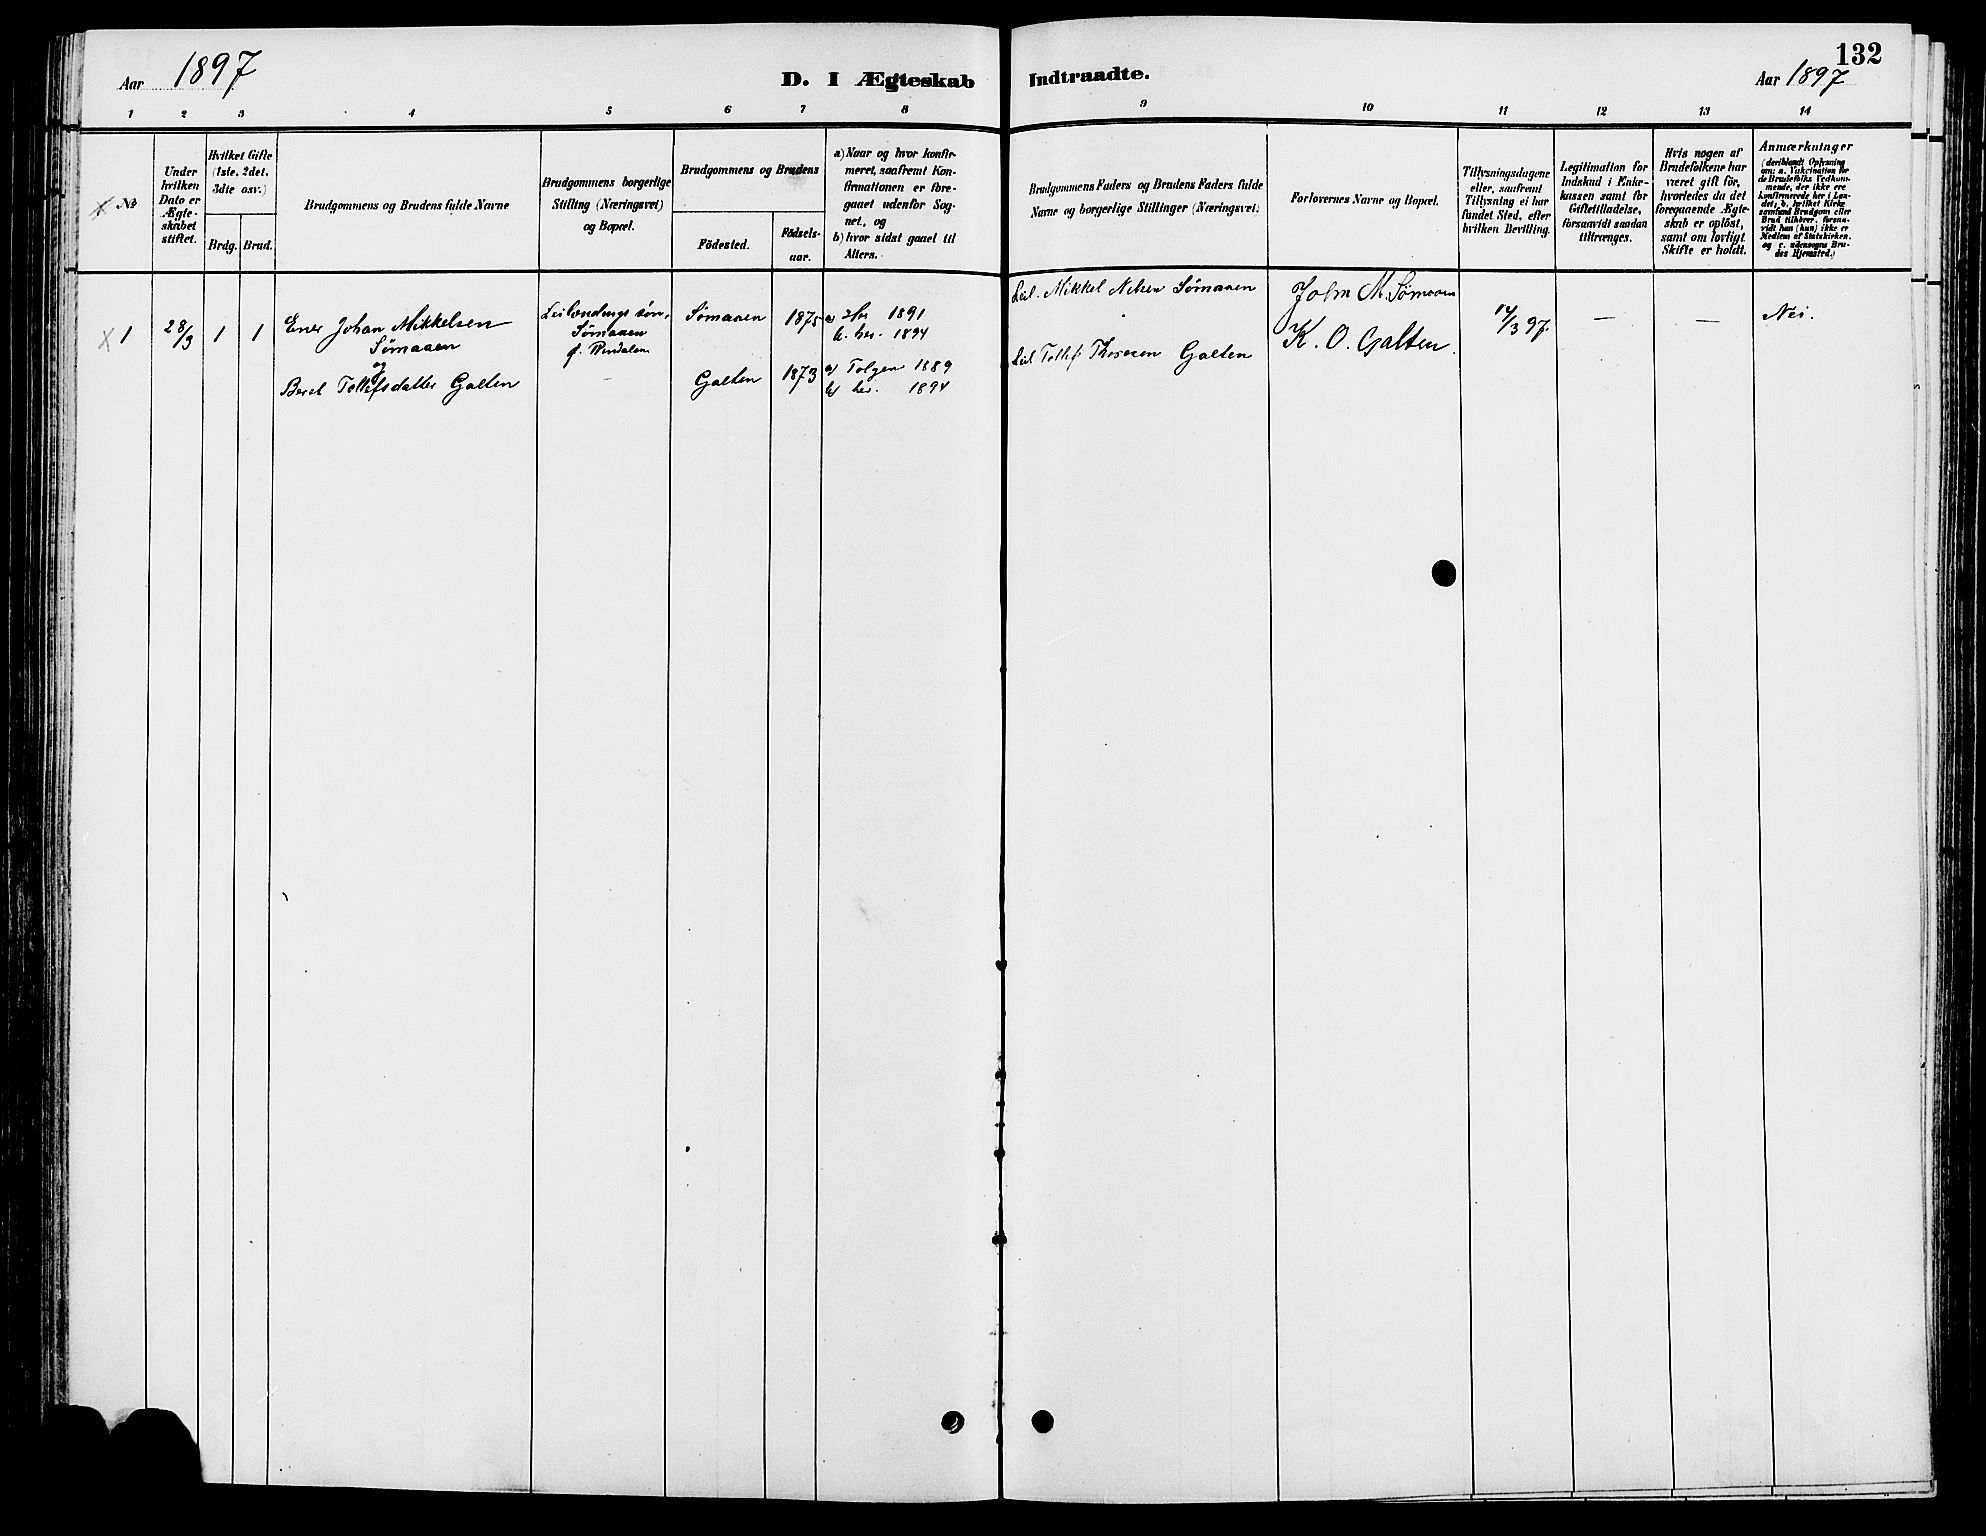 132
Aar 1897
D. I Ægteskab Indtraadte.
Aar 1897
1 2 3 4 5 6 7 8 9 10 11 12 13 14
No
Under
hvilken
Dato er
Ægte-
skabet
stiftet.
Hvilket Gifte
(1ste, 2det,
3die osv.)
Brdg. Brud.
Brudgommens og Brudens fulde Navne
Brudgommens borgerlige
Stilling (Næringsvei)
og Bopæl.
Brudgommens og Brudens
Födested.
Födsels-
aar.
a) Naar og hvor konfir-
meret, saafremt Kon-
firmationen er fore-
gaaet udenfor Sog-
net, og
b) hvor sidst gaaet til
Alters.
Brudgommens Faders og Brudens Faders fulde
Navne og borgerlige Stillinger (Næringsvei.)
Forlovernes Navne og Bopæl.
Tillysningsdagene
eller, saafremt
Tillysning ei har
fundet Sted, efter
hvilken Bevilling.
Legitimation for
Indskud i Enke-
kassen samt for
Giftetilladelse,
forsaavidt saadan
tiltrænges.
Hvis nogen af
Brudefolkene har
været gift för,
hvorledes da det
foregaaende Ægte-
skab er oplöst,
samt om lovligt
Skifte er holdt.
Anmærkninger
(deriblandt Oplysning
om: a. Vakcination for
de Brudefolks Vedkom-
mende, der ikke ere
konfirmerede her i Lan-
det; b. hvilket Kirke
samfund Brudgom eller
Brud tilhörer, forsaa-
vidt han (hun) ikke er
Medlem af Statskirken,
og c. udensogns Bru-
des Hjemsted.)
1 28/3 1 1
Johan Mikkelsen
Sömaaen
og
Beret Tollefsdatter Galten
Leilændings sön,
Sömaaen
Sömaaen 1875
Galten 1873
a) 2/10 1891
b. her. 1894
a) Tolgen 1889
b) her. 1894
Leil. Mikkel Nilsen Sömaaen
Leil. Tollef Galten
John M. Sömaaen
K. O. Galten.
14/3 97.
—
—
Nei.